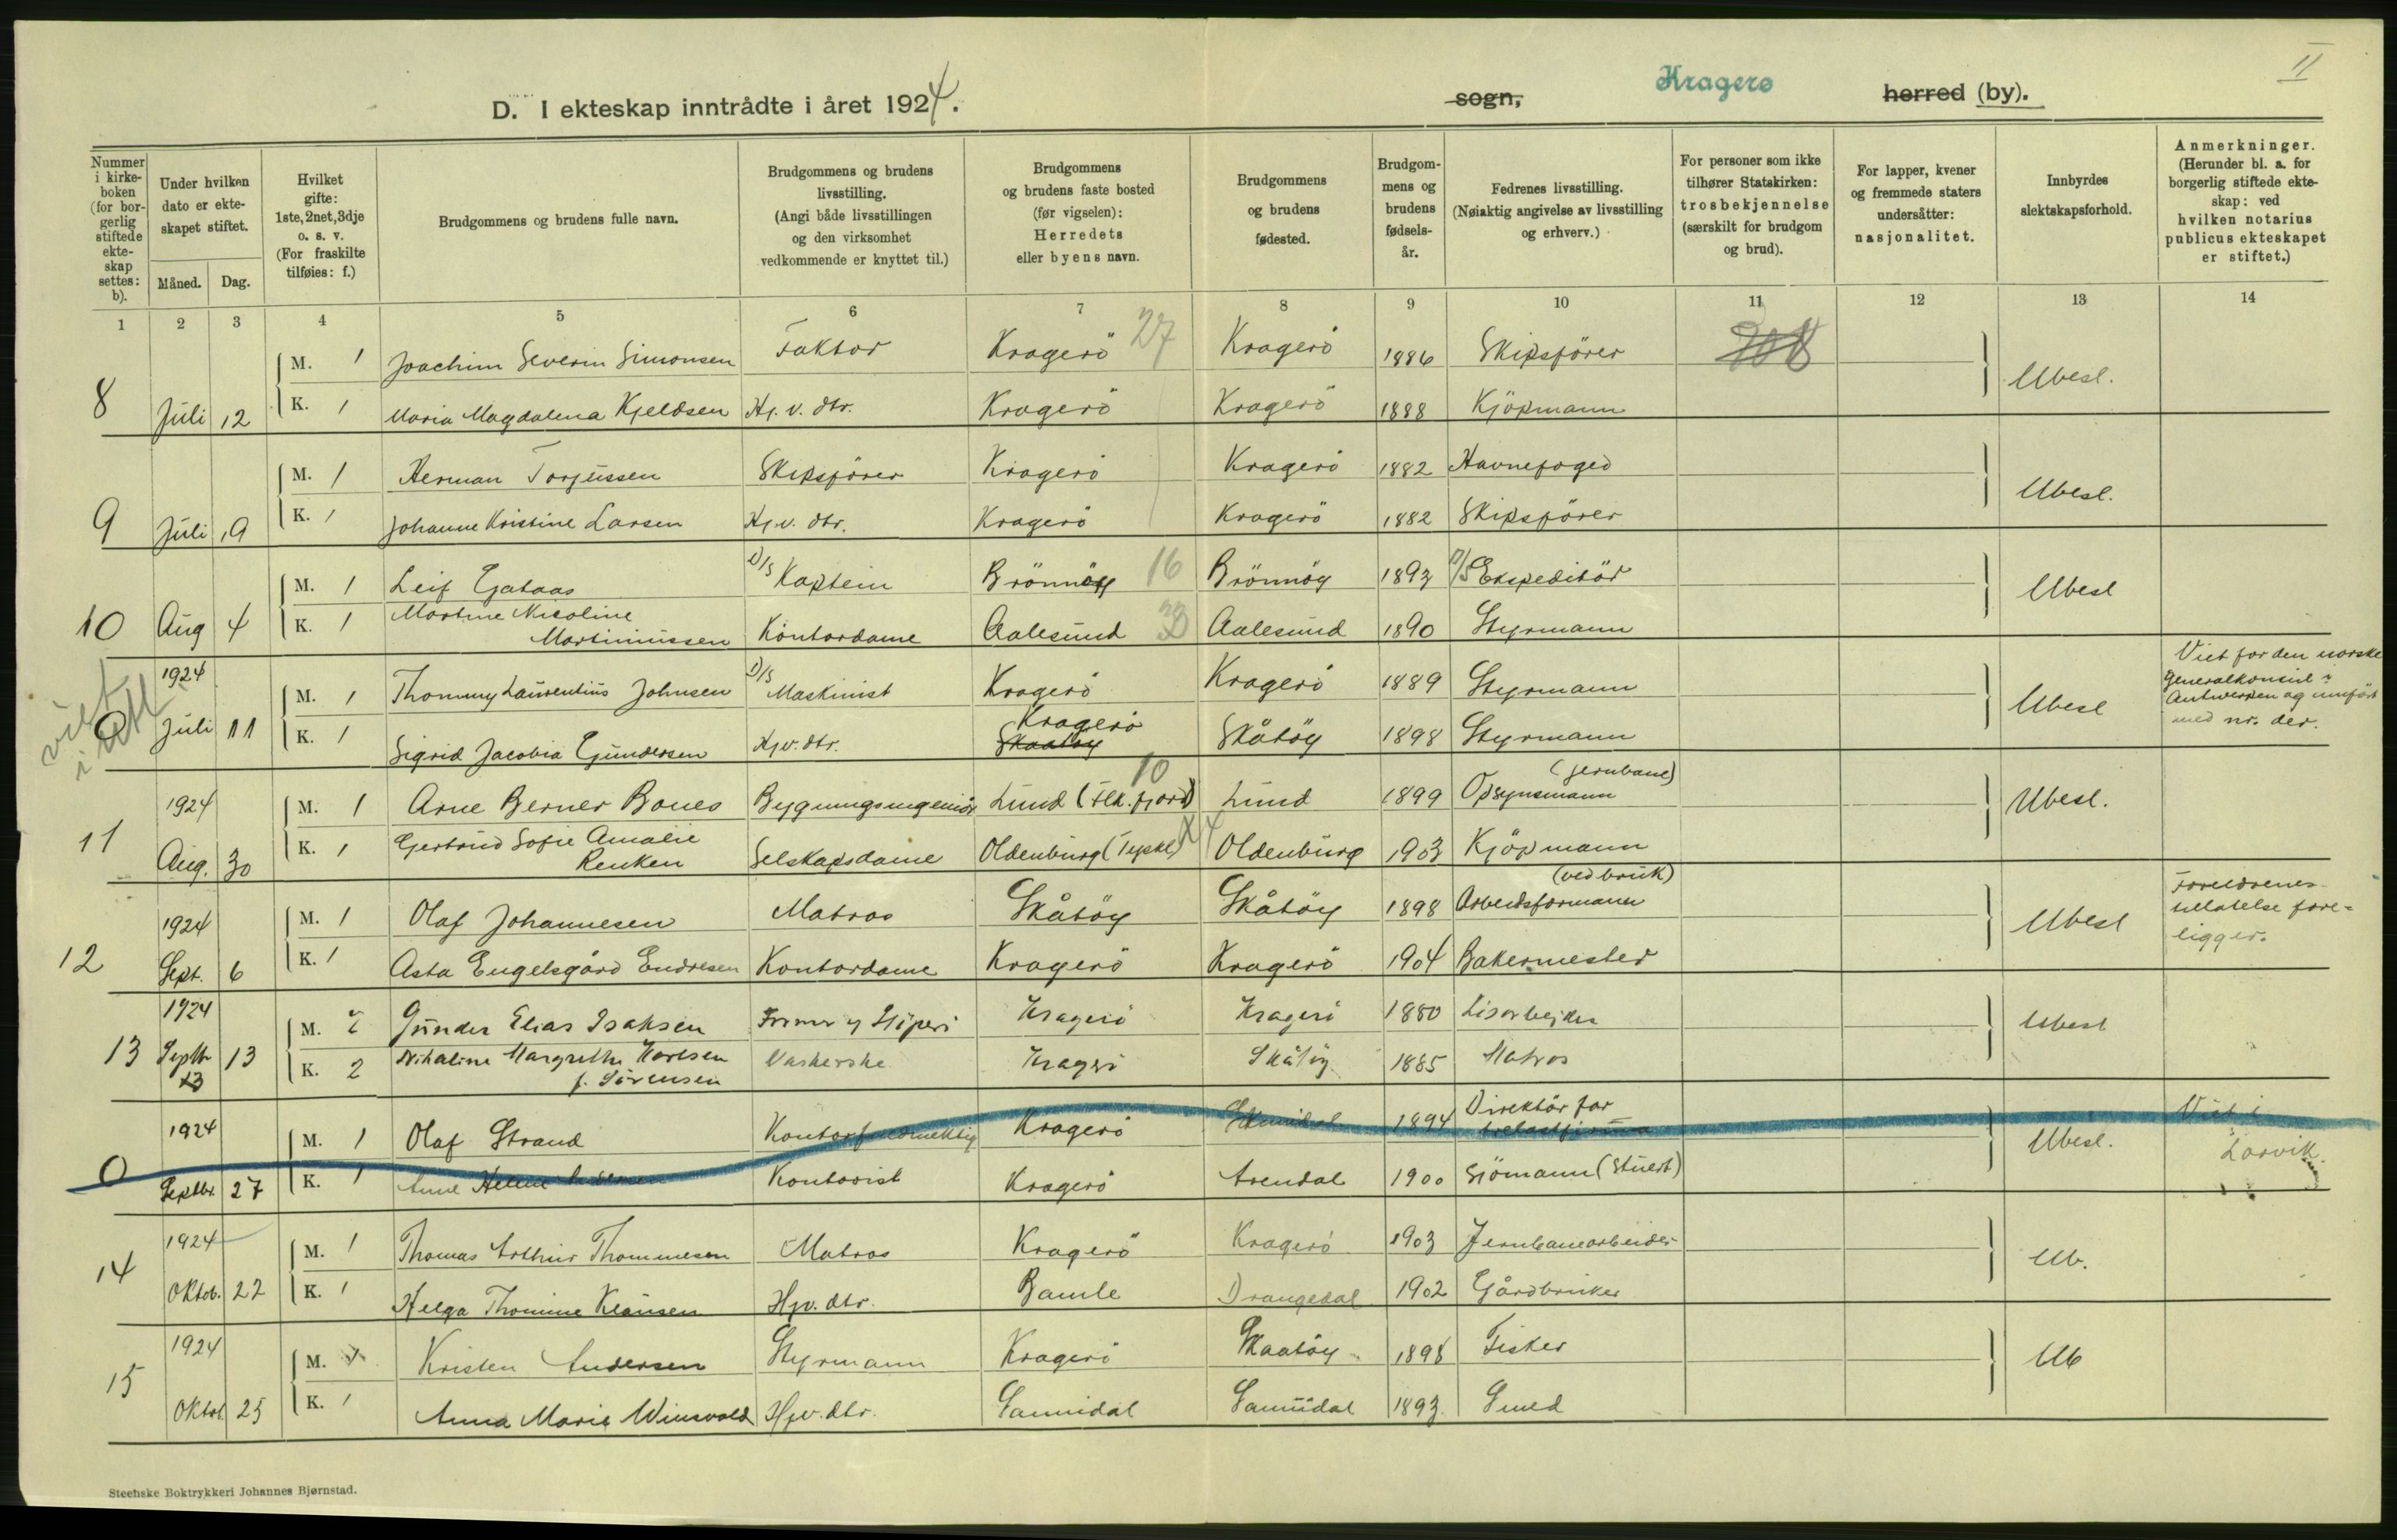 II
D. I ekteskap inntrådte i året 1924.
sogn, Kragerø herred (by).
Nummer i kirke-boken (for bor-gerlig stiftede ekte-skap settes: b).
Under hvilken dato er ekte-skapet stiftet.
Måned. Dag.
Hvilket gifte: 1ste, 2net, 3dje o. s. v. (For fraskilte tilføies: f.)
Brudgommens og brudens fulle navn.
Brudgommens og brudens livsstilling. (Angi både livsstillingen og den virksomhet vedkommende er knyttet til.)
Brudgommens og brudens faste bosted (før vigselen): Herredets eller byens navn.
Brudgommens og brudens fødested.
Brudgom-mens og brudens fødsels-år.
Fedrenes livsstilling. (Nøiaktig angivelse av livsstilling og erhverv.)
For personer som ikke tilhører Statskirken: trosbekjennelse (særskilt for brudgom og brud).
For lapper, kvener og fremmede staters undersåtter: nasjonalitet.
Innbyrdes slektskapsforhold.
Anmerkninger. (Herunder bl. a. for borgerlig stiftede ekte-skap: ved hvilken notarius publicus ekteskapet er stiftet.)
1 2 3 4 5 6 7 8 9 10 11 12 13 14
M. 1 Joachim Severin Simonsen Faktor Kragerö 27 Kragerö 1886 Skipsförer
8 Juli 12 K. 1 Maria Magdalena Kjeldsen Hj. v. dtr. Kragerö Kragerö 1888 Kjöpmann Ubesl.
M. 1 Herman Torjussen Skipsförer Kragerö Kragerö 1882 Havnefoged
9 Juli 19 K. 1 Johanne Kristine Larsen Hj. v. dtr. Kragerö Kragerö 1882 Skipsförer Ubesl.
M. 1 Leif Gataas D/S Kaptein Brönnöy 16 Brönnöy 1893 D/S Ekspeditör
10 Aug 4 K. 1 Martine Nicoline Martiniussen Kontordame Aalesund Aalesund 1890 Styrmann Ubesl
viet i utl
1924 M. 1 Thommy Laurentius Johnsen D/S Maskinist Kragerö Kragerö 1889 Styrmann
0 Juli 11 K. 1 Sigrid Jacobia Gundersen Hj.v. dtr. Kragerö Skaatöy Skåtöy 1898 Styrmann Ubesl
Viet for den norske
Generalkonsul i
Antwerpen og innfört
med nr. der.
1924 M. 1 Arne Berner Boues Bygningsingeniör Lund (Flk. fjord) 10 Lund 1899 Opsynsmann (jernbane)
11 Aug. 30 K. 1 Gertrud Sofie Amalie Renken Selskapsdame Oldenburg (Tyskl) Oldenburg 1903 Kjöpmann Ubesl.
1924 M. 1 Olaf Johannesen Matros Skåtöy Skåtöy 1898 Arbeidsformann (ved bruk)
12 Sept. 6 K. 1 Asta Engelsgård Endresen Kontordame Kragerö Kragerö 1904 Bakermester Ubesl
Foreldrenes
tillatelse fore-
ligger.
1924 M. 2 Gunder Elias Isaksen Kragerö Kragerö 1880
13 Septbr 13 K. 2 Margrethe Karlsen f. Sörensen Vaskerske Kragerö Skåtöy 1885 Matros Ubesl
1924 M. 1 Olaf Strand Kontorfuldmektig Kragerö 1894 Direktör for trelastfirma
0 Septbr. 27 K. 1 Anne Helene Kontorist Kragerö Arendal 1900 Sjömann (Stuert) Ubesl.
Viet i
Larvik.
1924 M. 1 Thomas Arthur Thommesen Matros Kragerö Kragerö 1903 Jernbanearbeider
14 Oktob. 22 K. 1 Helga Thomine Klausen Hjv. dtr. Bamle Drangedal 1902 Gårdbruker Ub.
1924 M. 1 Kristen Andersen Styrmann Kragerö Skaatöy 1898 Fisker
15 Oktob 25 K. 1 Anna Marie Winsvold Hjv. dtr. Sannidal Sannidal 1893 Smed Ub
Steenske Boktrykkeri Johannes Bjørnstad.